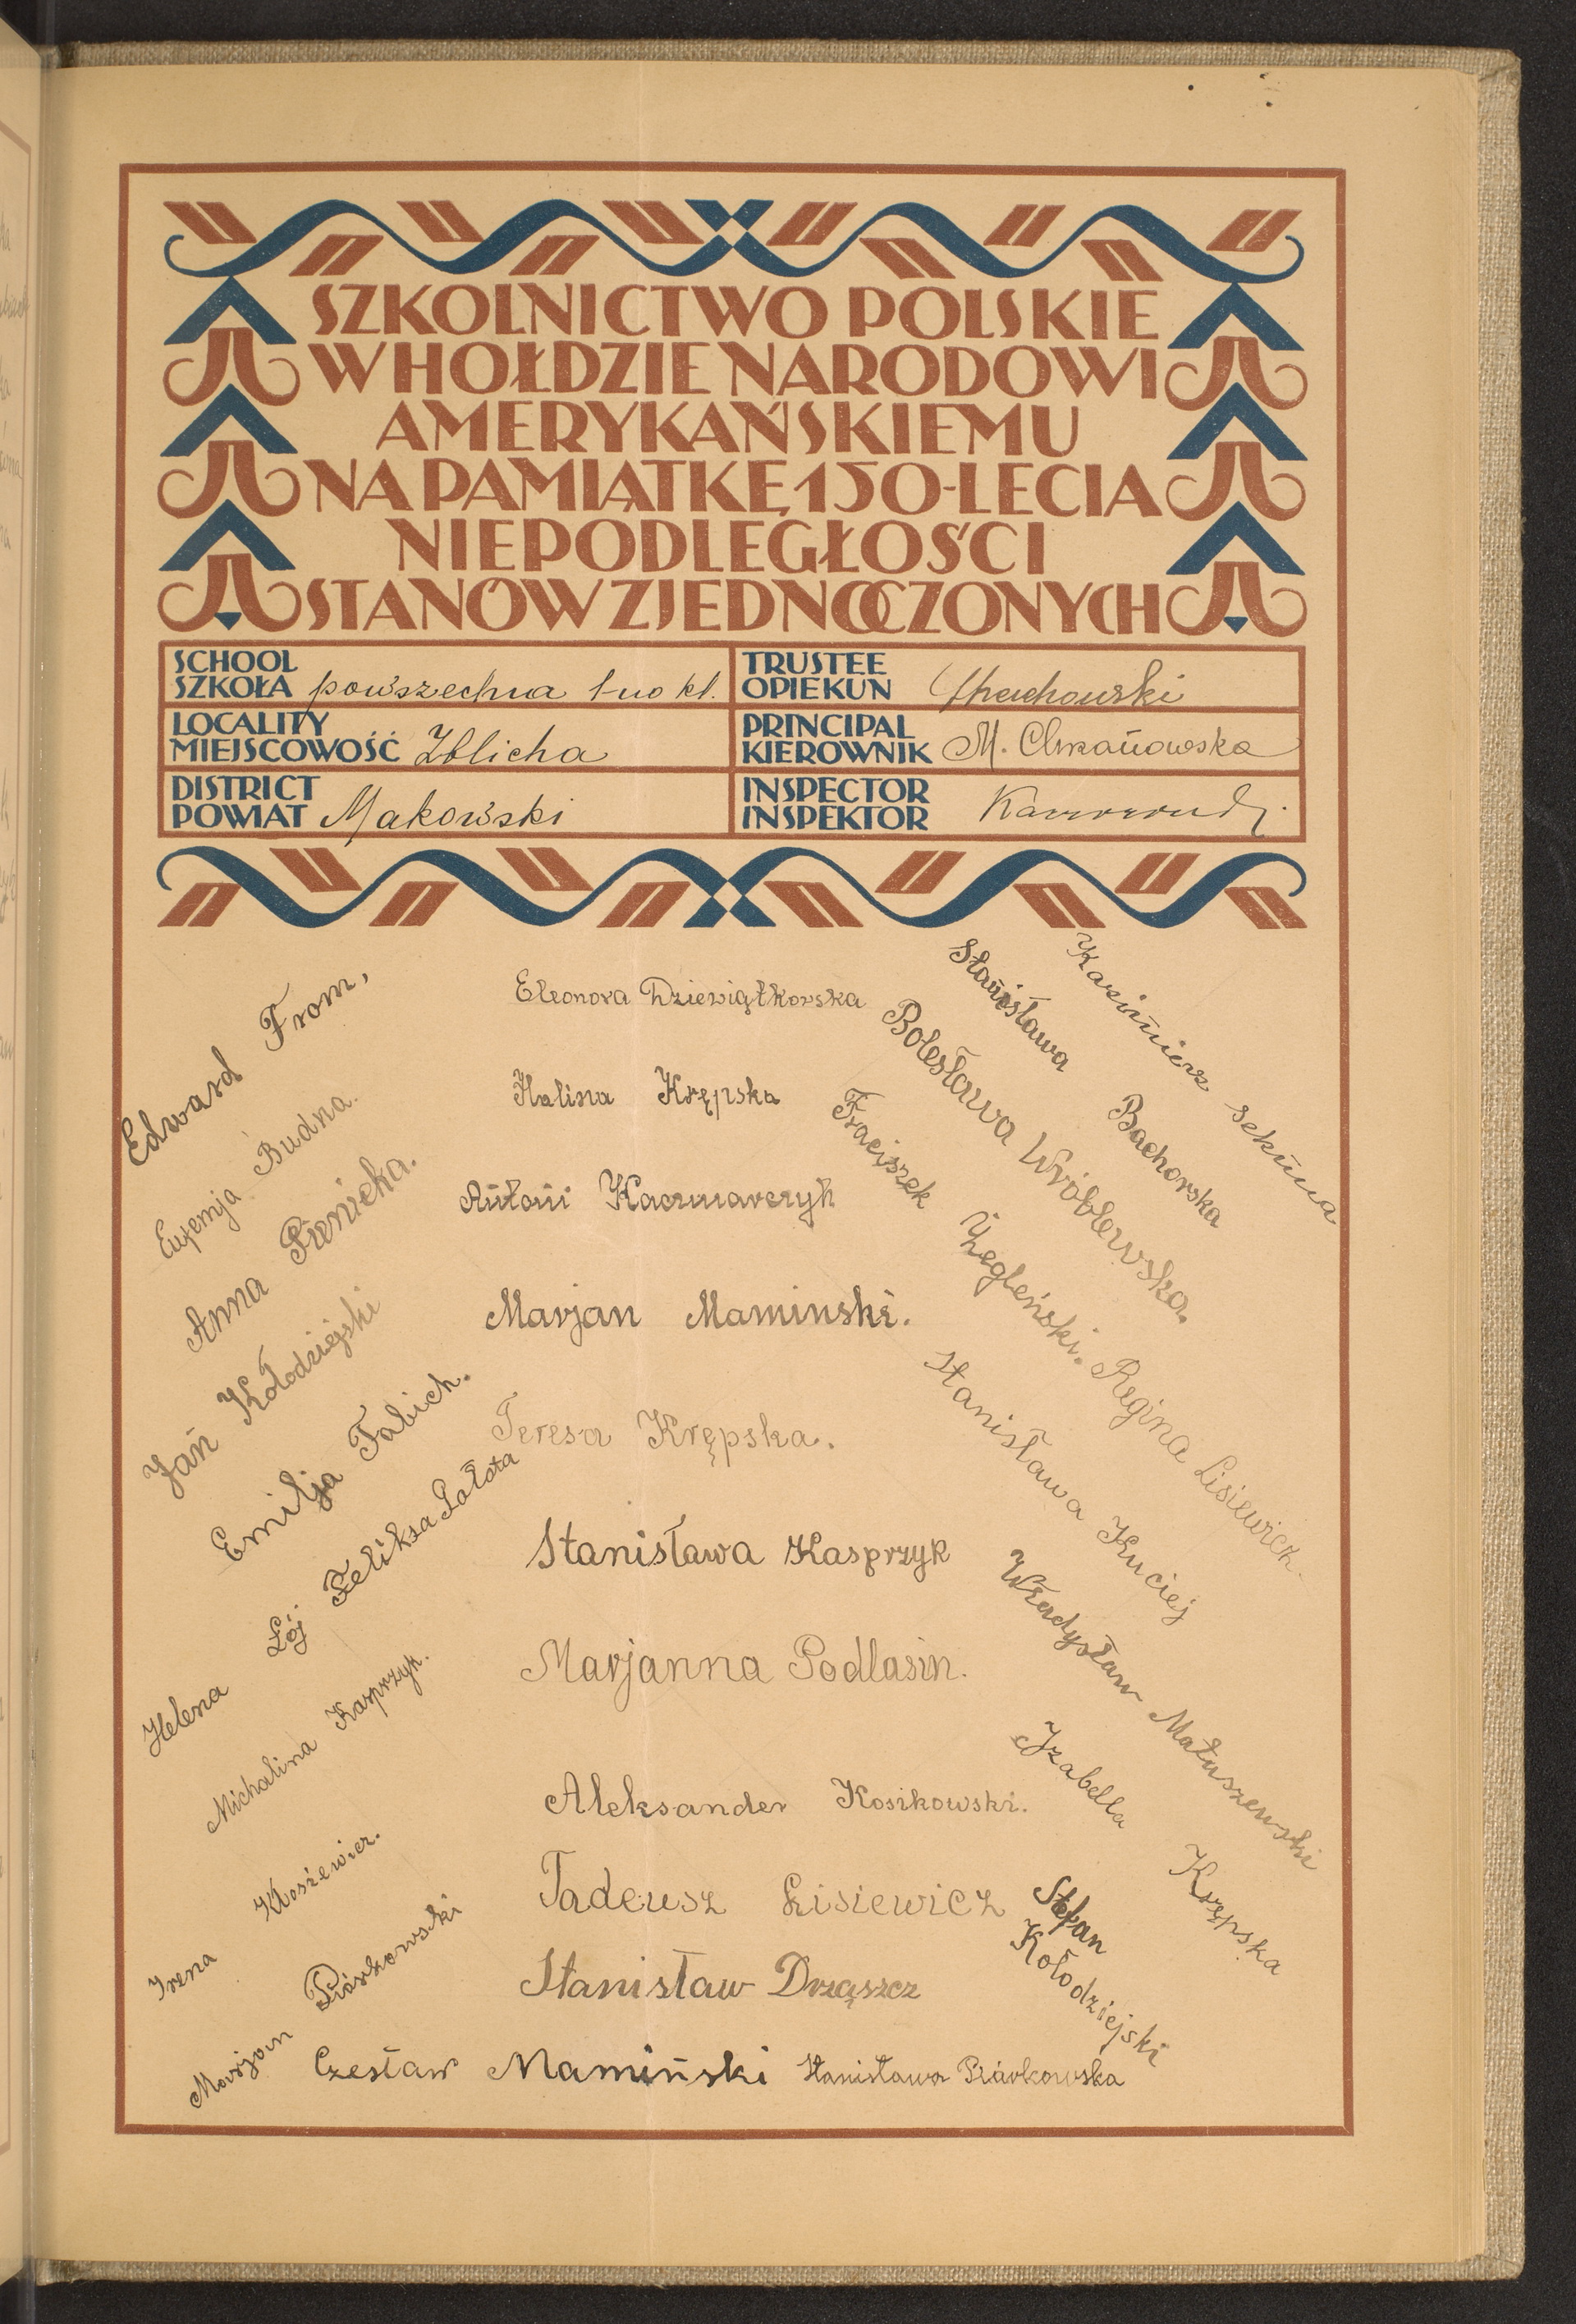 SZKOLNICTWO POLSKIE
W HOŁDZIE NARODOWI
AMERYKAŃSKIEMU
NA PAMIĄTKĘ 150-LECIA
NIEPODLEGŁOŚCI
STANÓW ZJEDNOCZONYCH
SCHOOL
SZKOŁA powszechna 1-no kl.
TRUSTEE
OPIEKUN
LOCALITY
MIEJSCOWOŚĆ Zblicha
PRINCIPAL
KIEROWNIK M. Chrzanowska
DISTRICT
POWIAT Makowski
INSPECTOR
INSPEKTOR
Edward From,
Eugemja Budna.
Anna Pienicka.
Jań Kołodziejski
Emilja Fabich.
Feliksa Sołota
Helena Łój
Michalina Kasprzyk.
Irena Kłosiewicz.
Marjan Piórkowski
Eleonora Dziewiątkowska
Halina Krępska
Antoni Kaczmarczyk
Marjan Maminski.
Teresa Krępska.
Stanisława Kasprzyk
Marjanna Podlasin.
Aleksander Kosikowski.
Tadeusz Lisiewicz
Stanisław Drząszcz
Czesław Mamiński
Stanisława Piórkowska
Kazimierz Sekuna
Stanisława Bachorska
Bolesława Wróblewska.
Fraciszek Żegleński.
Regina Lisiewicz.
Stanisława Kuciej
Władysław Matuszewski
Izabella Krępska
Stefan Kołodziejski